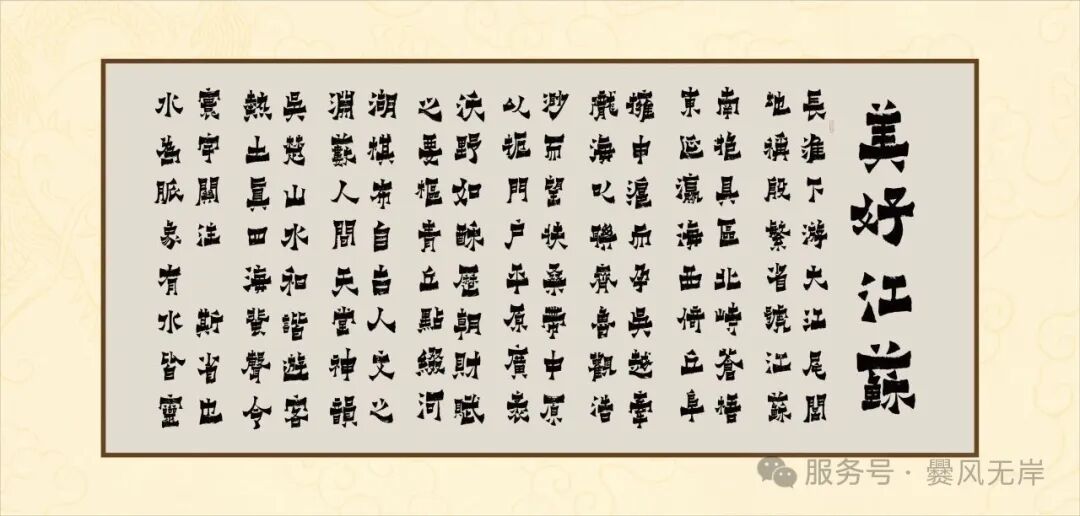 美好江蘇
長淮下游大江尾閭
地稱殷繁省號江蘇
南抱具區北峙蒼梧
東延瀛海西倚丘阜
擁申滬而孕吳越牽
龍海以聯齊魯觀浩
渺而望扶桑帶中原
以扼門戶平原廣袤
沃野如酥歷朝財賦
之要樞青丘點綴河
湖棋布自古人文之
淵藪人間天堂神韻
吳楚山水和諧遊客
熱土眞四海蜚聲令
寰宇關注 斯省也
水為脈象有水皆靈
服务号·爨风无岸